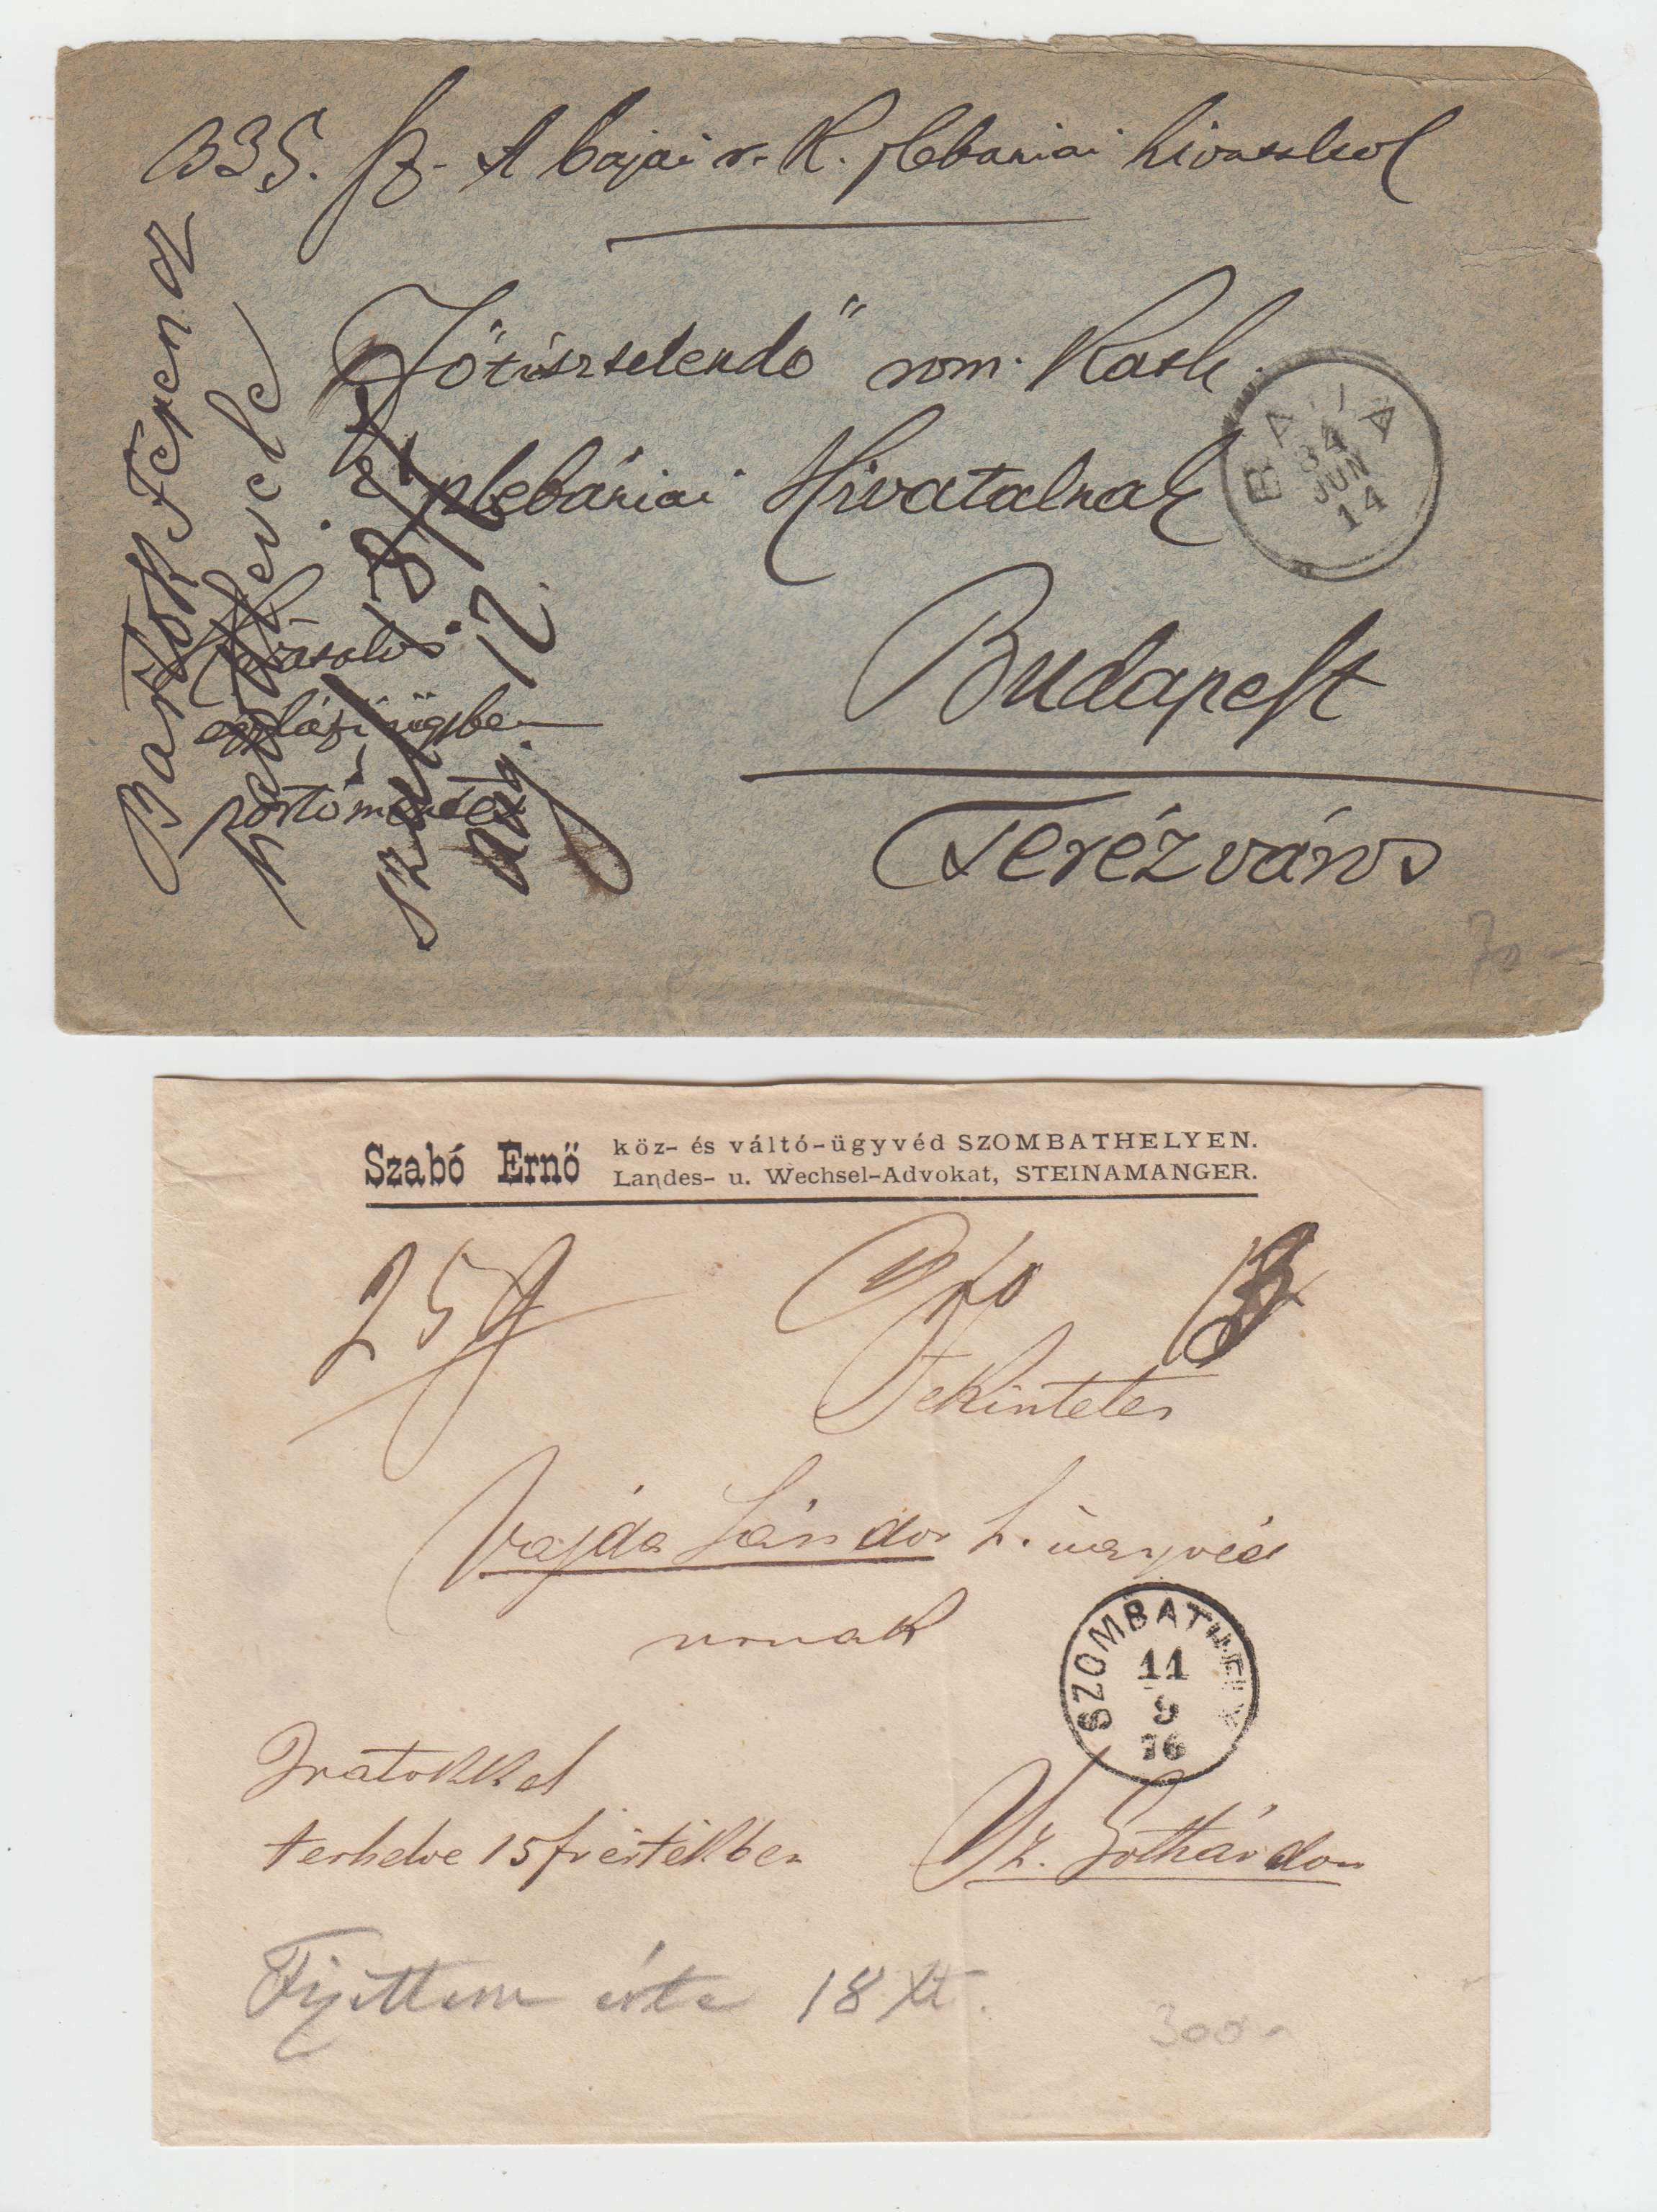 335. sz. A bajai r. K. plebániai hivataltól
"Főtisztelendő" rom. Kath.
plebániai Hivatalnak
Budapest
Terézváros
BAJA
84
JUN
14
Bartók Ferencz
levele
egyházi ügyben
portómentes
szül
aug. 12.
70 -
Szabó Ernő
köz- és váltó-ügyvéd SZOMBATHELYEN.
Landes- u. Wechsel-Advokat, STEINAMANGER.
Tekintetes
Vajda Sándor h. ügyvéd
urnak
SZOMBATHELY
11
9
76
Iratokkal
terhelve 15 fr értékben
Sz. Gothárdon
Fizettem érte 18 xt.
300 -